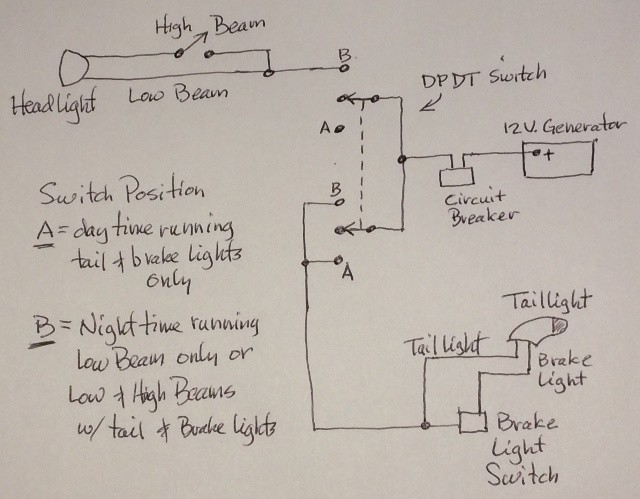 High Beam
B
DPDT Switch
Headlight
Low Beam
A
12V. Generator
+
Circuit
Breaker
Switch Position
A = daytime running
tail & brake lights
only
B
A
B = Nighttime running
Low Beam only or
Low & High Beams
w/ tail & Brake lights
Taillight
Taillight
Brake
Light
Brake
Light
Switch